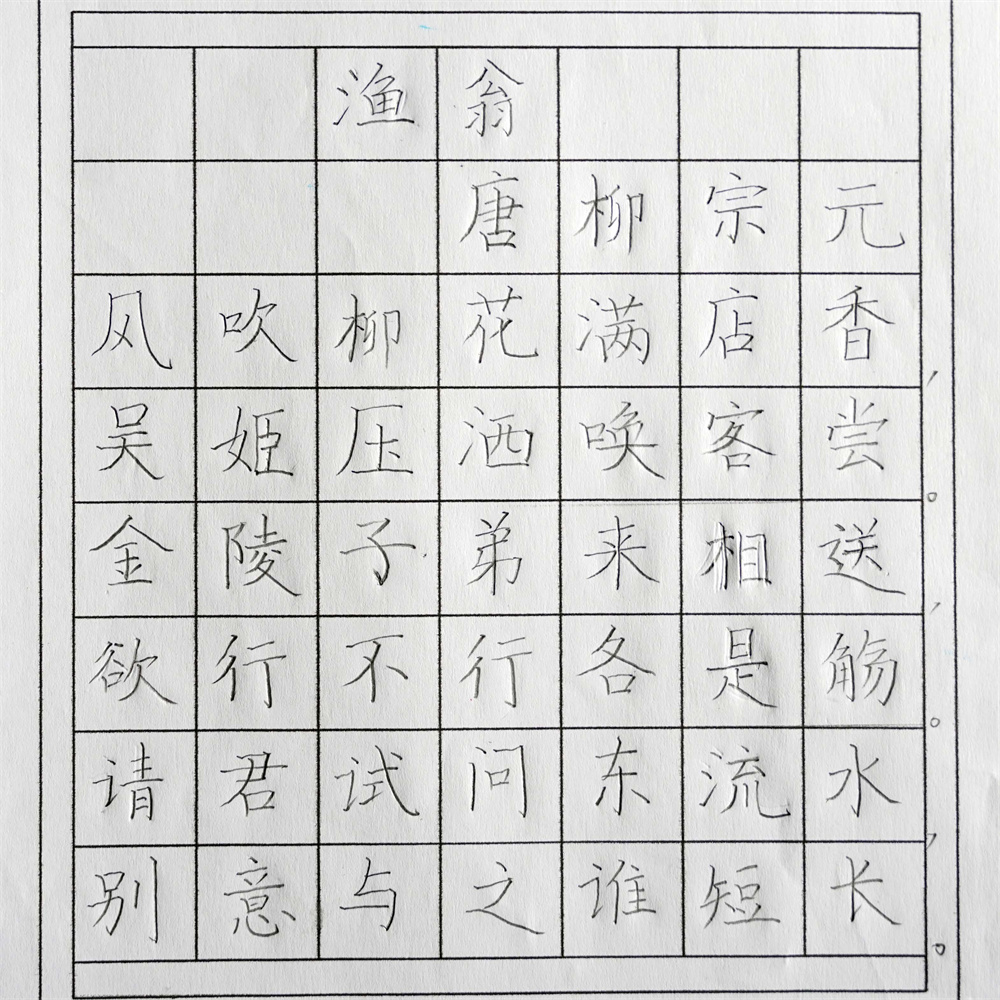 渔翁
唐柳宗元
风吹柳花满店香，
吴姬压洒唤客尝。
金陵子弟来相送，
欲行不行各是觞。
请君试问东流水，
别意与之谁短长。